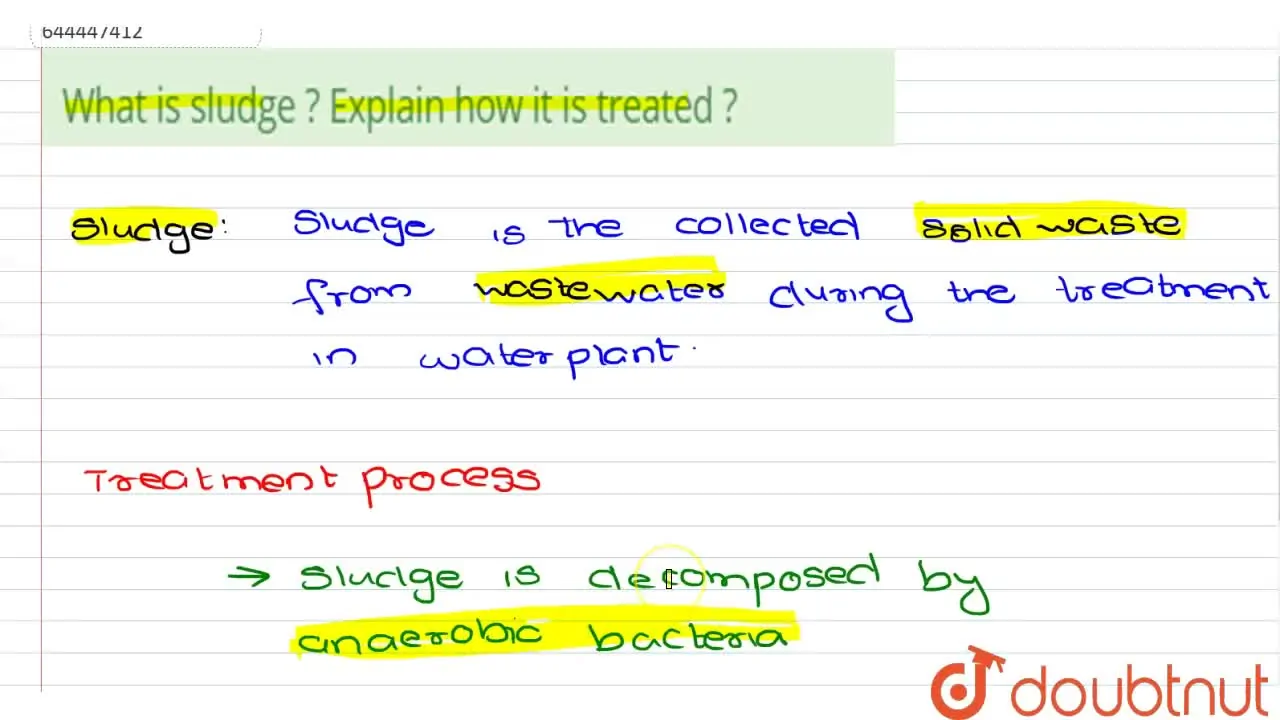 644447412
What is sludge ? Explain how it is treated ?
Sludge: Sludge is the collected solid waste
from wastewater during the treatment
in water plant.
Treatment process
→ Sludge is decomposed by
anaerobic bacteria
doubtnut